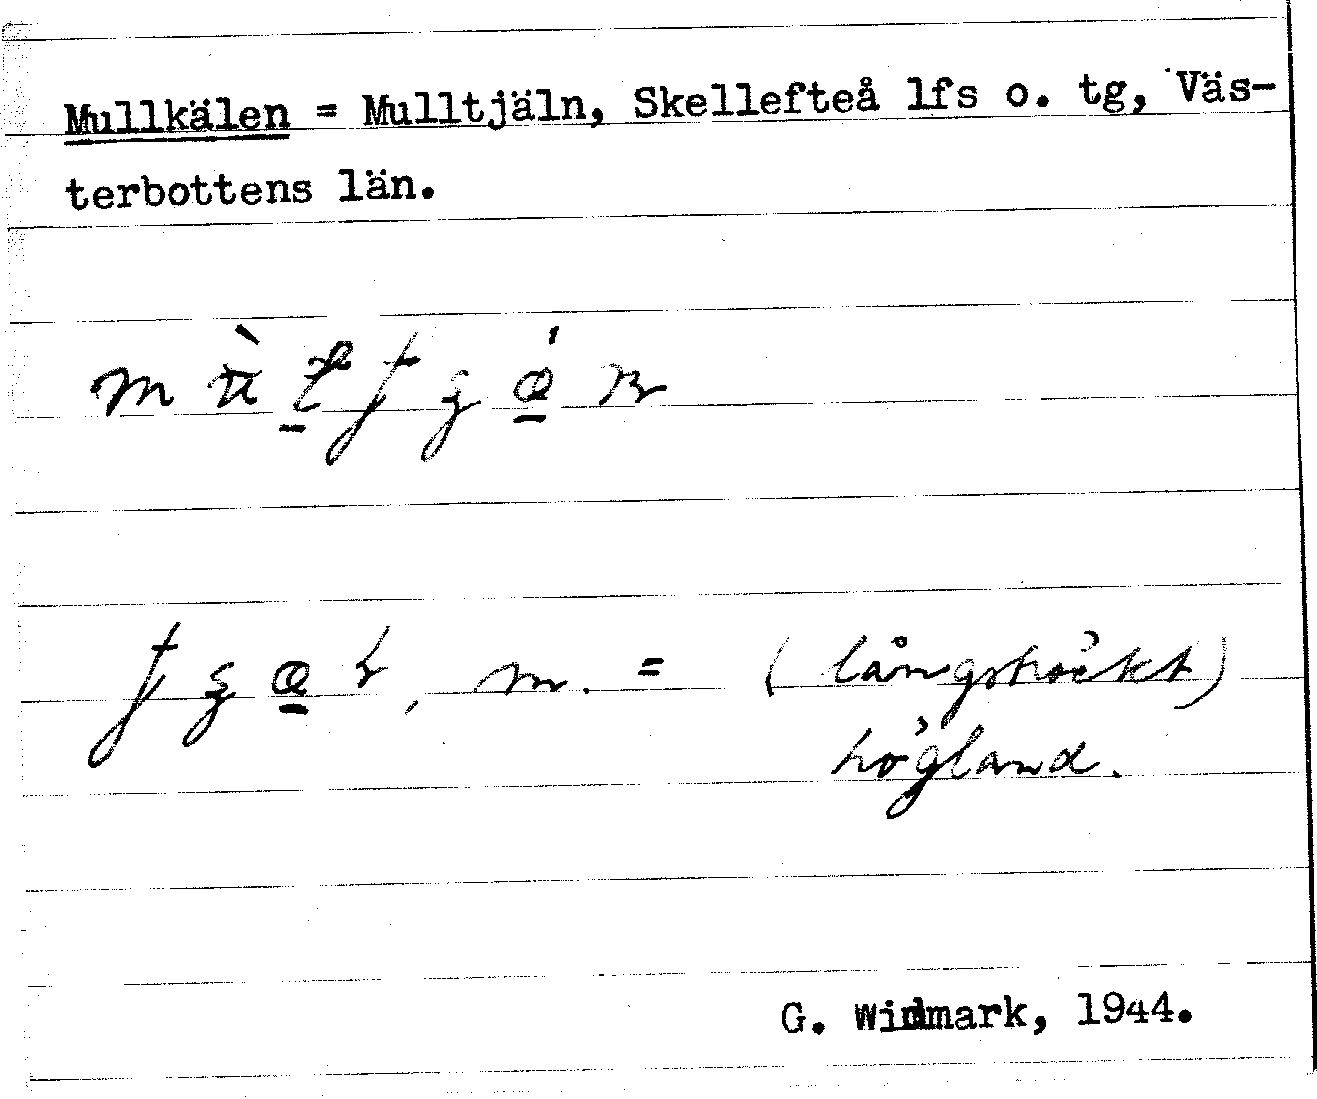 Mullkälen = Mulltjäln, Skellefteå lfs o. tg, Väs-
terbottens län.
m. = (långsträckt)
högland.
G. Widmark, 1944.